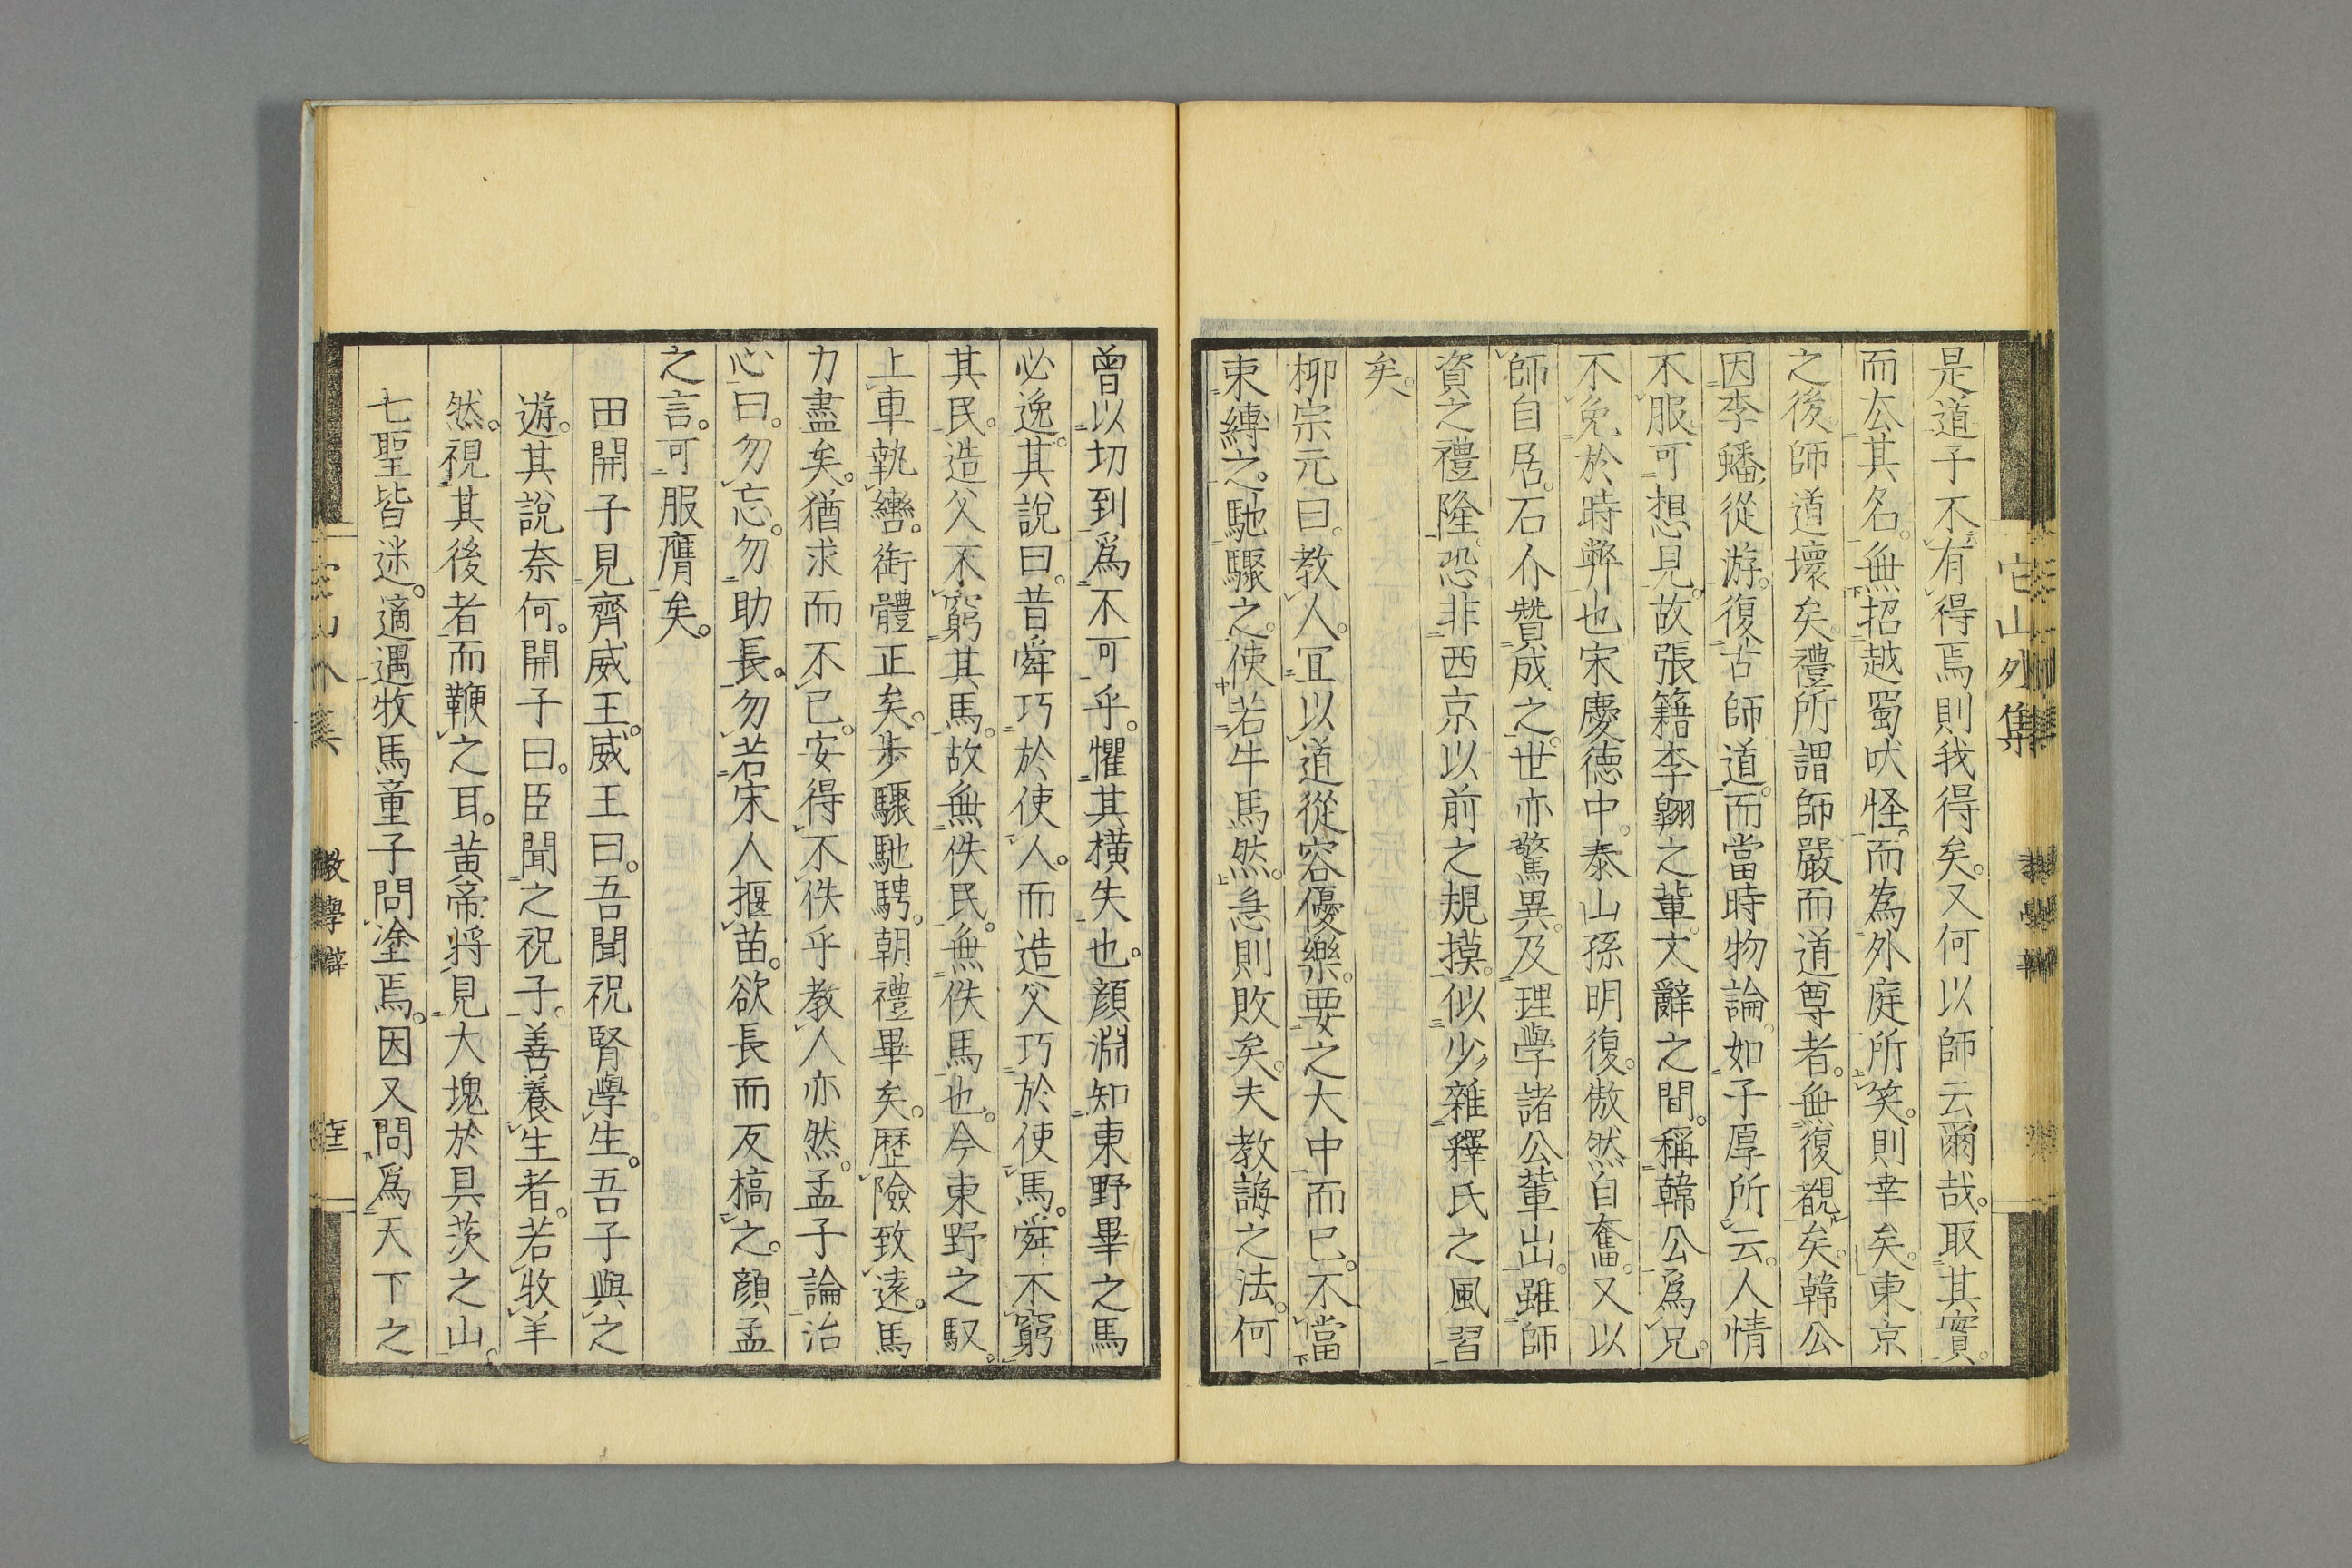 它山外集
是道子不有得焉則我得矣。又何以師云爾哉。取其實。
而厺其名。無招越蜀吠怪。而為外庭所笑。則幸矣。東京
之後師道壞矣。禮所謂師嚴而道尊者。無復覩矣。韓公
因李蟠從游。復古師道。而當時物論。如子厚所云。人情
不服可想見。故張籍李翺之輩。文辭之間。稱韓公爲兄。
不免於時弊也宋慶德中。泰山孫明復。傲然自奮。又以
師自居。石介贊成之。世亦驚異。及理學諸公輩出。雖師
資之禮隆。恐非西京以前之規摸。似少雜釋氏之風習
矣。
柳宗元曰。教人。宜以道從容優樂。要之大中而已。不當
束縛之。馳驟之。使若牛馬然。急則敗矣。夫教誨之法。何
曾以切到爲不可乎。懼其橫失也。顏淵知東野畢之馬
必逸。其説曰。昔舜巧於使人。而造父巧於使馬。舜不窮
其民。造父不窮其馬。故無佚民。無佚馬也。今東野之馭。
上車執轡。銜體正矣。步驟馳騁。朝禮畢矣。歷險致遠。馬
力盡矣。猶求而不已。安得不佚乎教人亦然。孟子論治
心曰。勿忘。勿助長。勿若宋人揠苗。欲長而反槁之。顏孟
之言。可服膺矣。
田開子見齊威王。威王曰。吾聞祝腎學生。吾子與之
遊。其説奈何。開子曰。臣聞之祝子。善養生者。若牧羊
然。視其後者而鞭之耳。黃帝將見大塊於具茨之山。
七聖皆迷。適遇牧馬童子問塗焉。因又問爲天下之